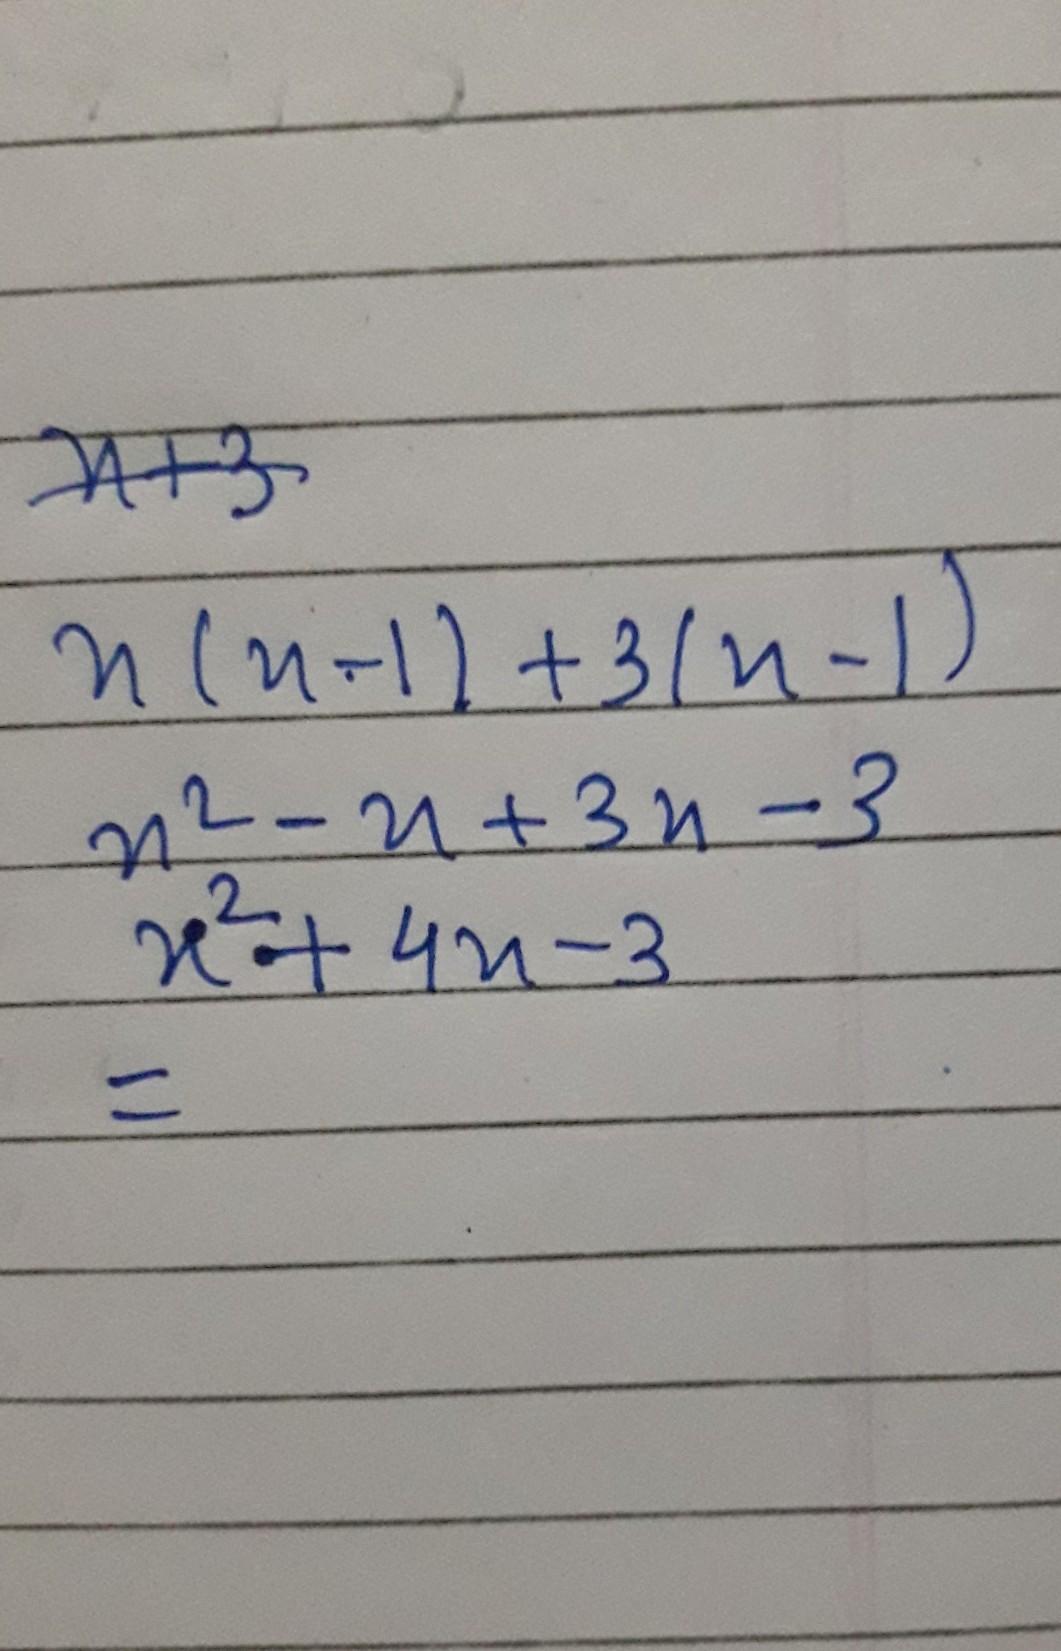 x+3
x(x-1)+3(x-1)
x²-x+3x-3
x²+4x-3
=